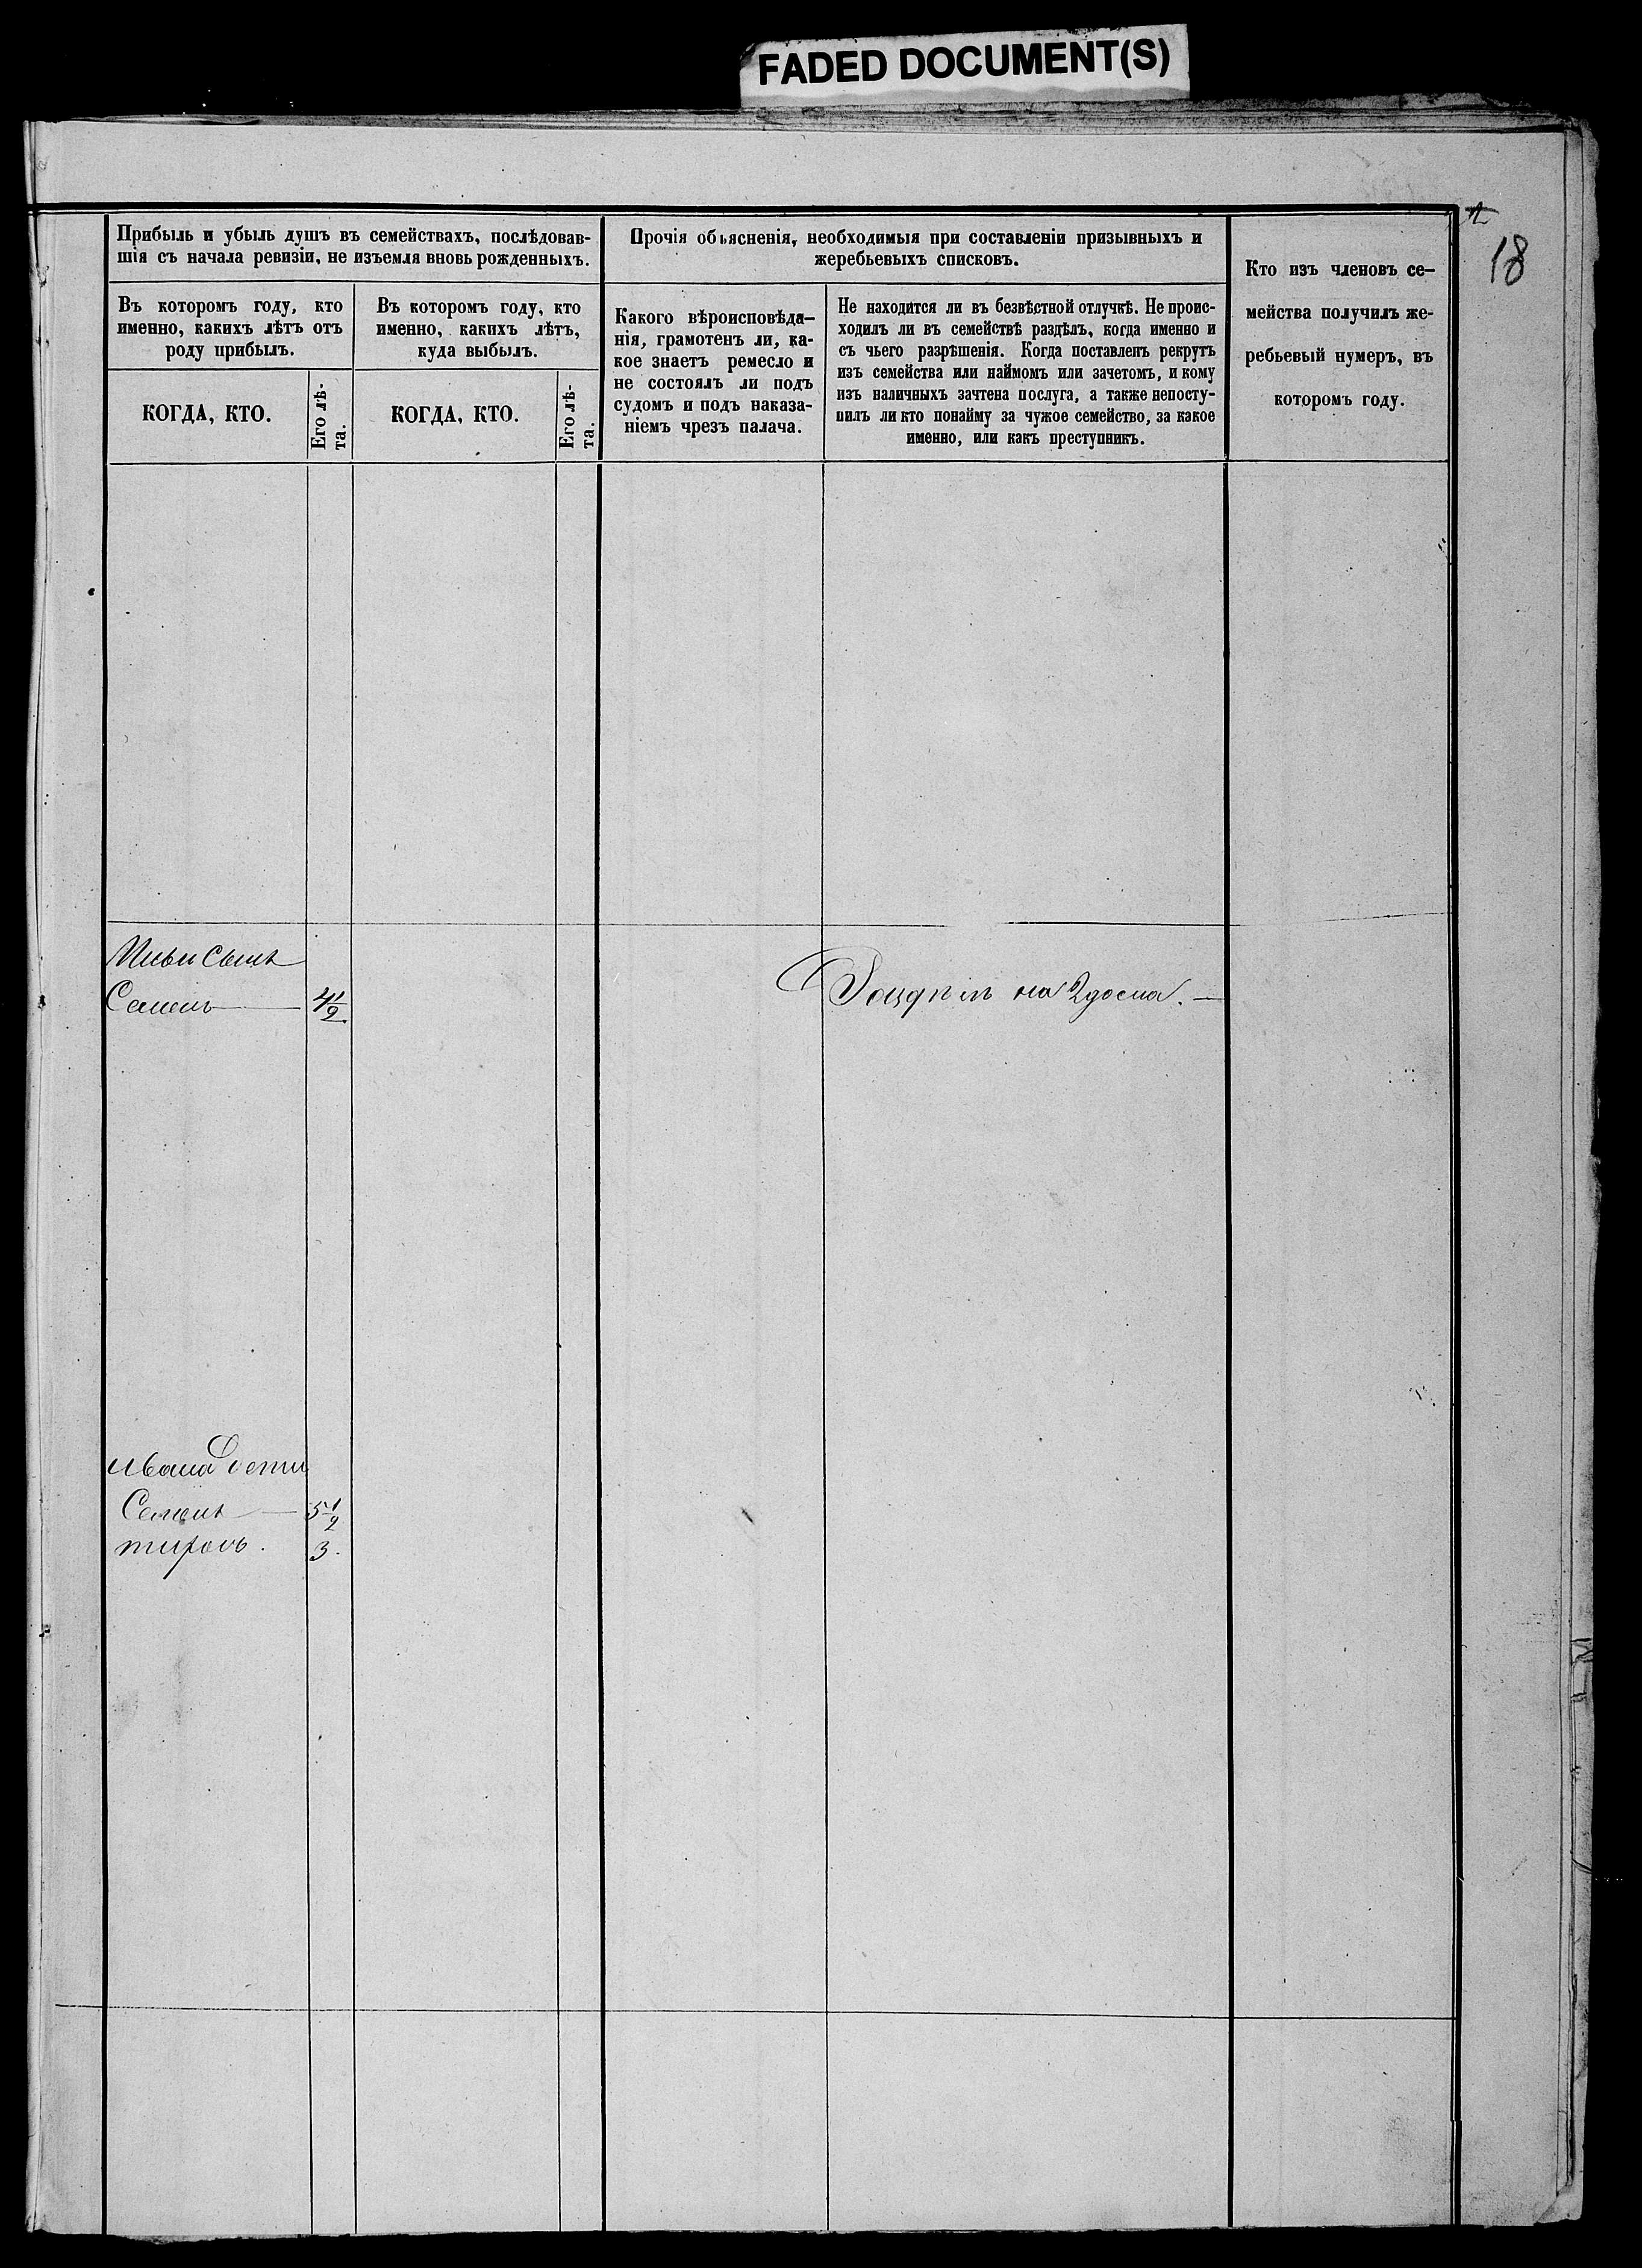 FADED DOCUMENT(S)
18
Прибыль и убыль душъ въ семействахъ, послѣдовав-
шія съ начала ревизіи, не изъемля вновь рожденныхъ.
Прочія объясненія, необходимыя при составленіи призывныхъ и
жеребьевыхъ списковъ.
Кто изъ членовъ се-
мейства получилъ же-
ребьевый нумеръ, въ
которомъ году.
Въ которомъ году, кто
именно, какихъ лѣтъ отъ
роду прибылъ.
Въ которомъ году, кто
именно, какихъ лѣтъ,
куда выбылъ.
Какого вѣроисповѣда-
нія, грамотенъ ли, ка-
кое знаетъ ремесло и
не состоялъ ли подъ
судомъ и подъ наказа-
ніемъ чрезъ палача.
Не находится ли въ безвѣстной отлучкѣ. Не проис-
ходилъ ли въ семействѣ раздѣлъ, когда именно и
съ чьего разрѣшенія. Когда поставленъ рекрутъ
изъ семейства или наймомъ или зачетомъ, и кому
изъ наличныхъ зачтена послуга, а также непосту-
пилъ ли кто понайму за чужое семейство, за какое
именно, или какъ преступникъ.
КОГДА, КТО.
Его лѣ-
та.
КОГДА, КТО.
Его лѣ-
та.
сынъ
Семенъ 4 1/2
Раздѣлъ на 2 дома.
Ивана дети
Семенъ 5 1/2
3.